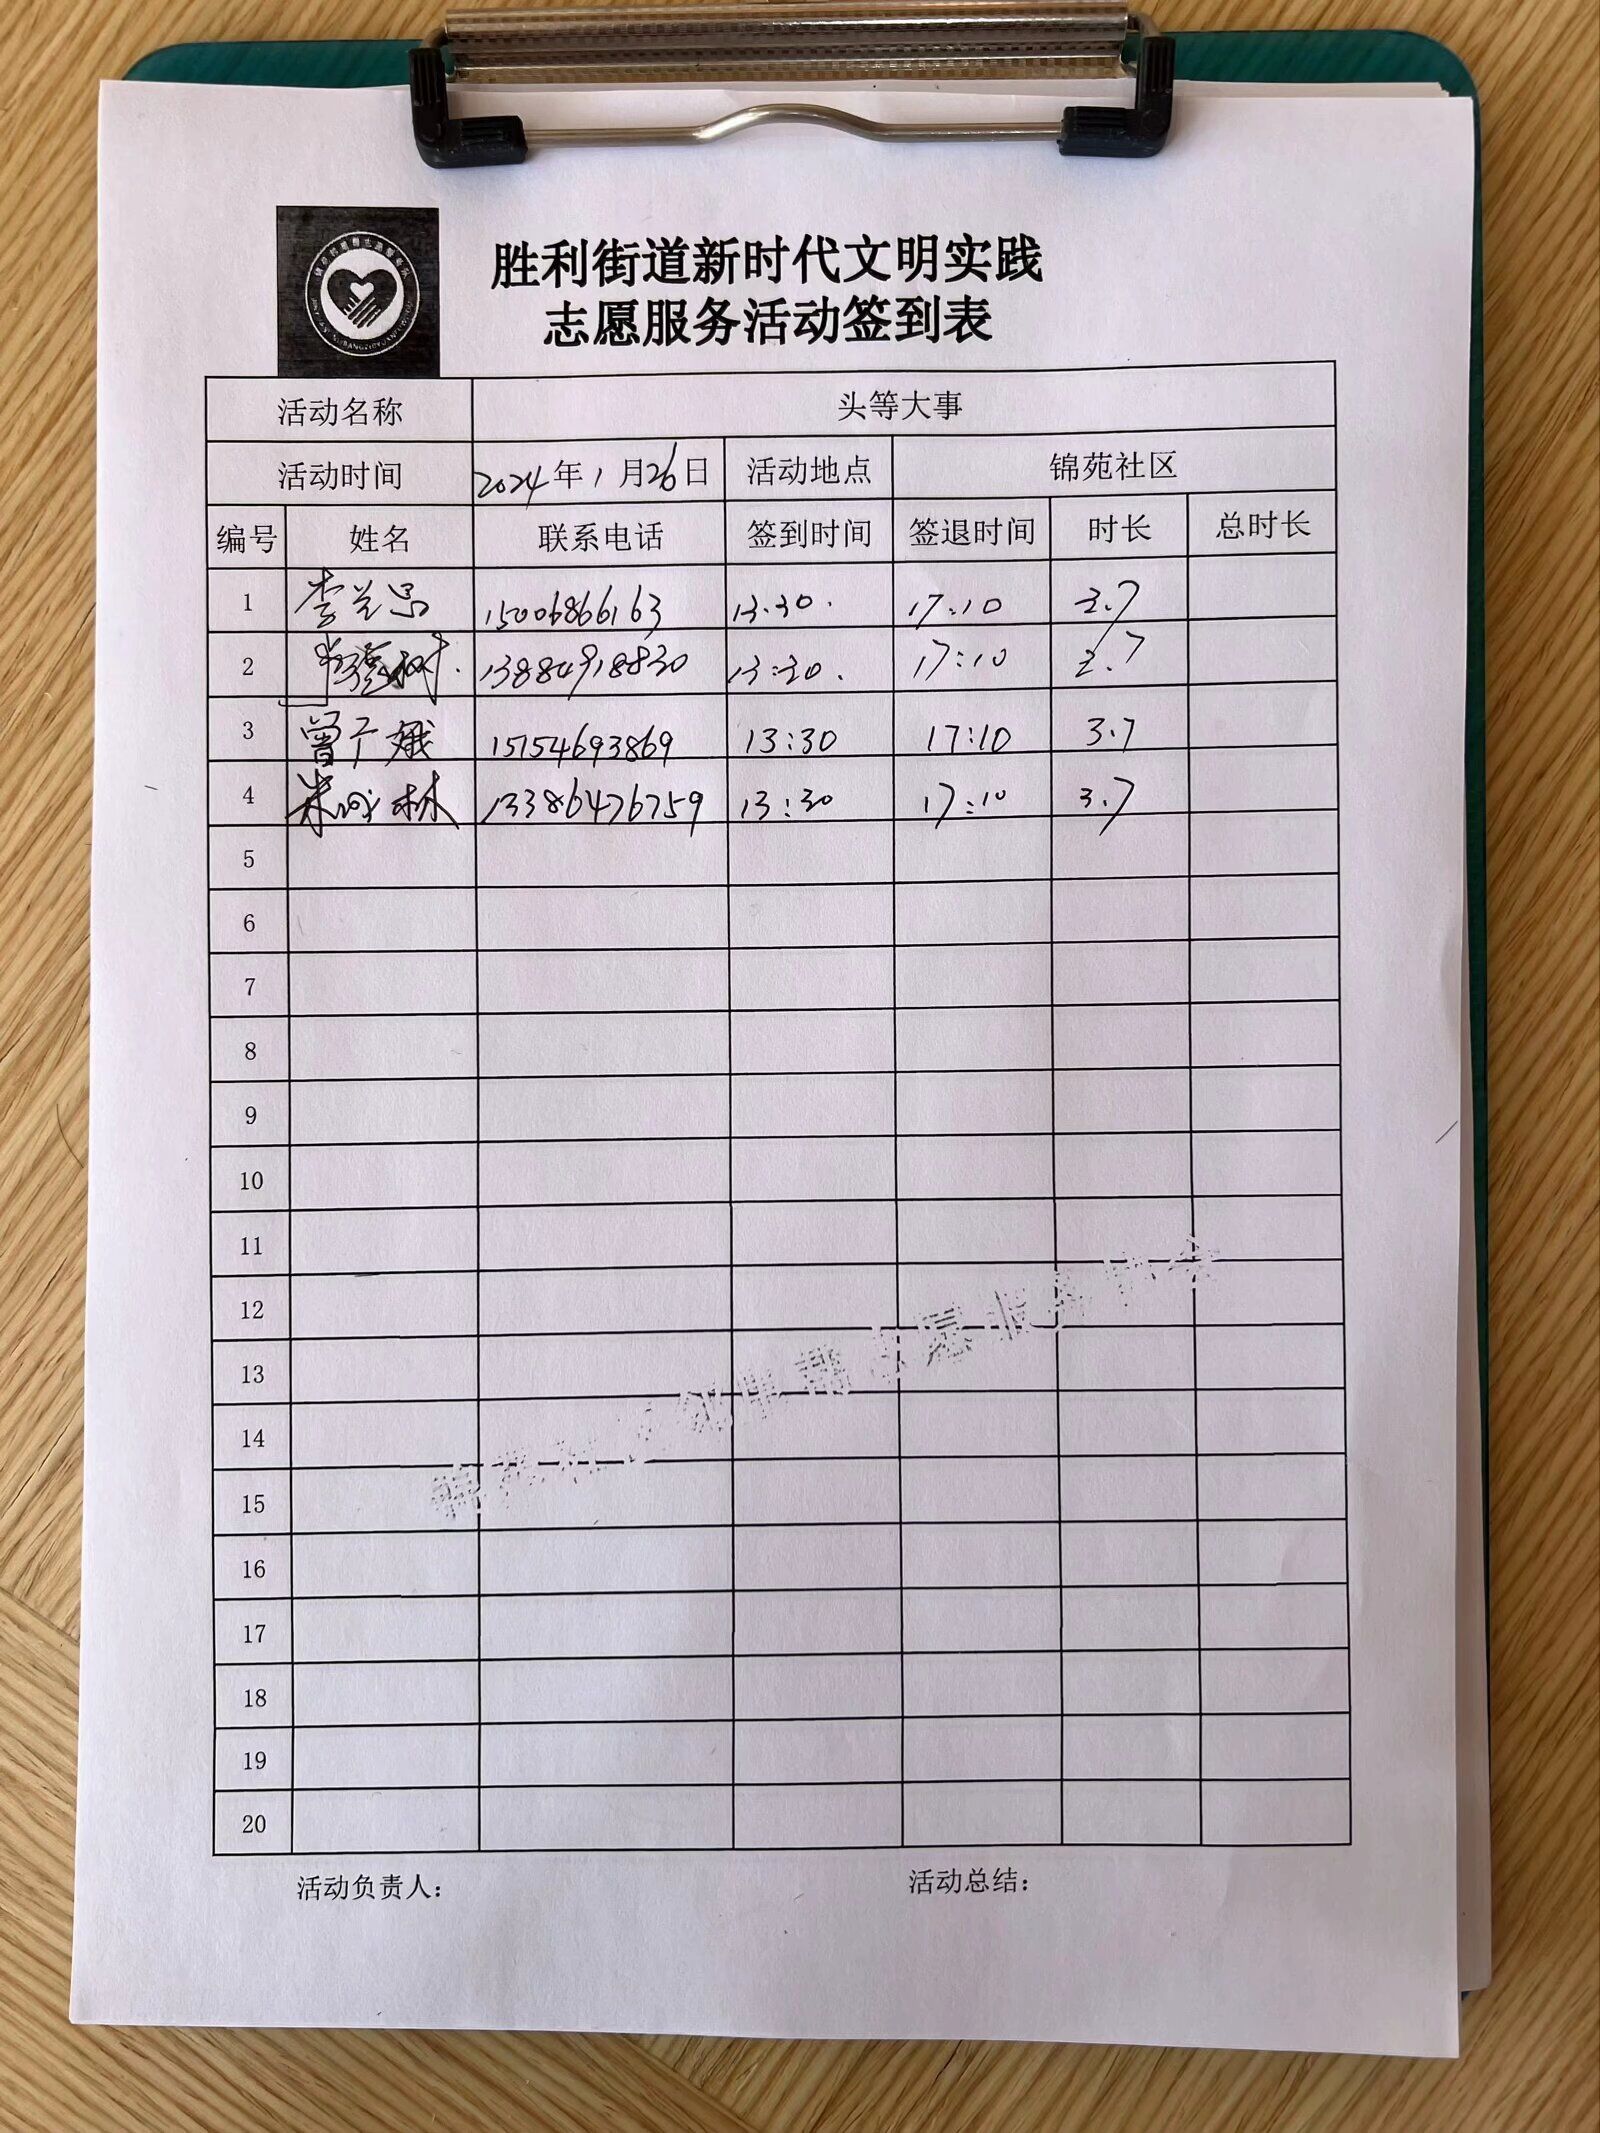 胜利街道新时代文明实践
志愿服务活动签到表
活动名称 头等大事
活动时间 2024年1月26日 活动地点 锦苑社区
编号 姓名 联系电话 签到时间 签退时间 时长 总时长
1 李 15006866163 13:30. 17:10 3.7
2 树. 13884918830 13:30. 17:10 3.7
3 曾广娥 15754693869 13:30 17:10 3.7
4 林 13386476759 13:30 17:10 3.7
5
6
7
8
9
10
11
12
13
14
15
16
17
18
19
20
活动负责人： 活动总结：